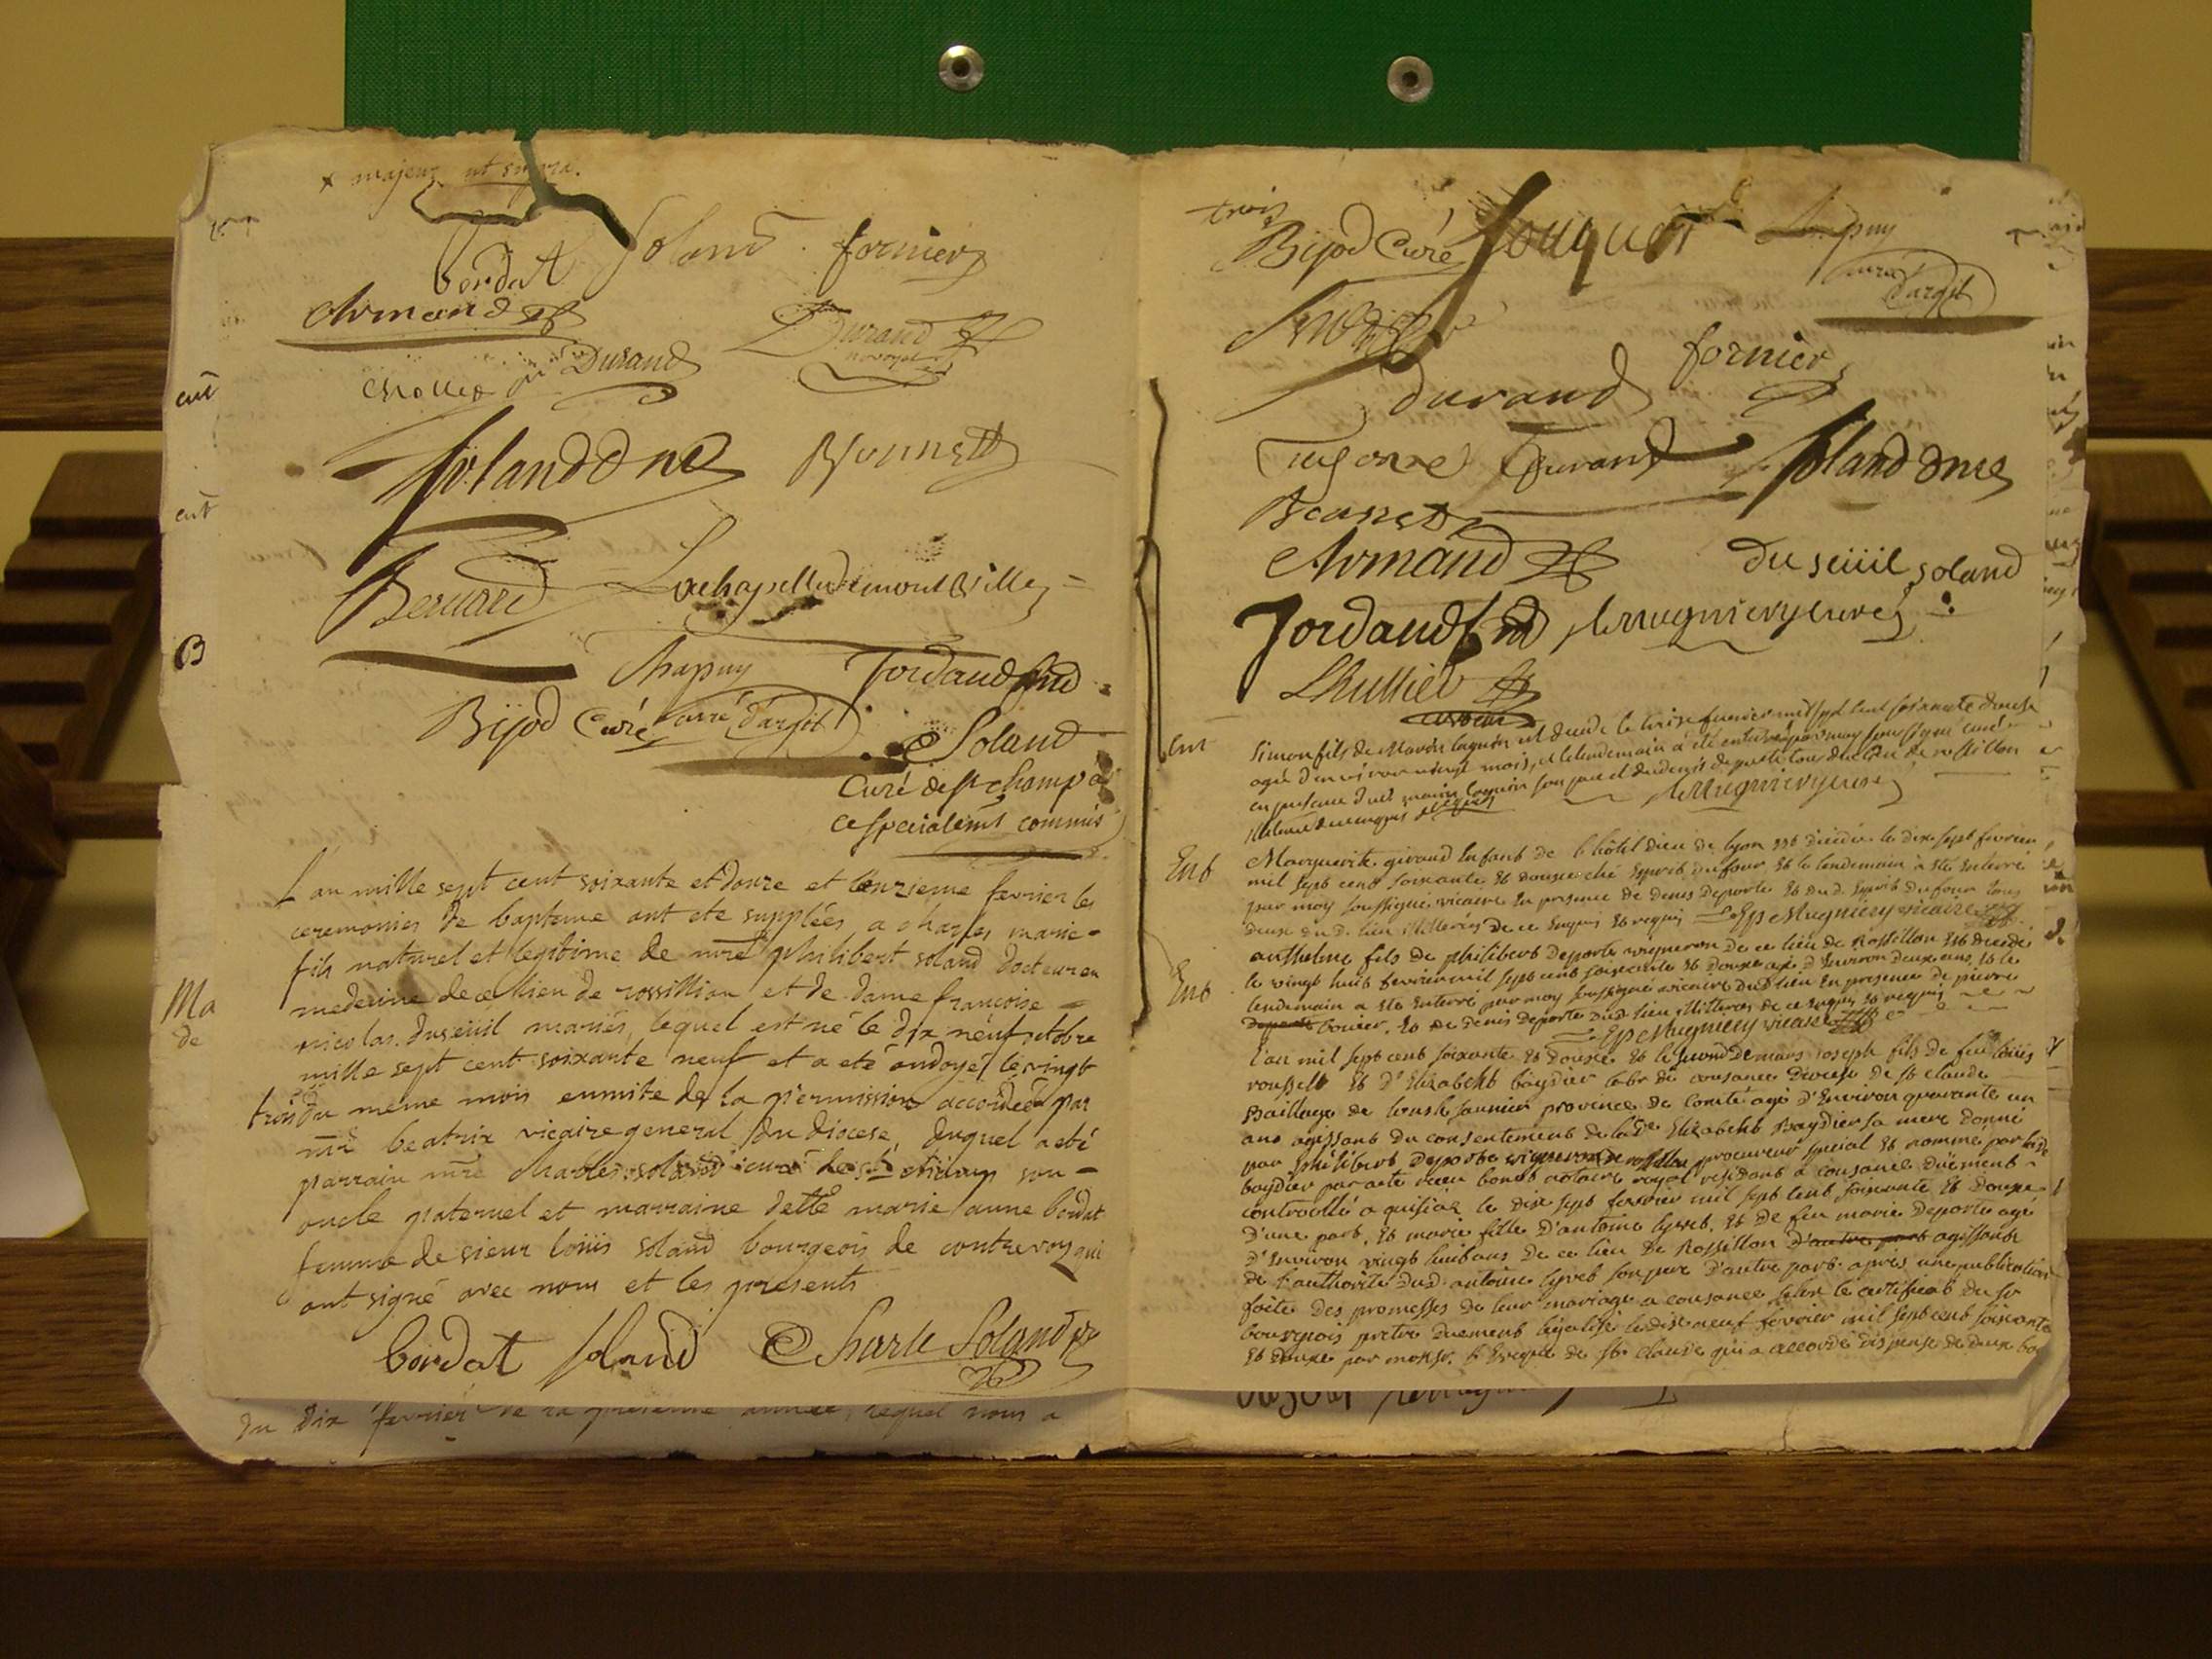 x majeur ut supra.
bordat Soland fornier
Armand
Durand Durand
Soland dne Bonnet
Bernard Lachapelle de montvilley
Chapuy Jordand
Bijod Curé curé d'argit
C Soland
Curé de st champ a
ce specialemt commis
L'an mille sept cent soixante et douze et l'onzieme fevrier les
ceremonies de bapteme ont eté supplées a charles marie
fils naturel et legitime de mre philibert soland docteur en
medecine de ce lieu de rossillion et de dame françoise
nicolas duseüil mariés, lequel est né le dix neuf octobre
mille sept cent soixante neuf et a eté ondoyé le vingt
trois du meme mois en suite de la permission accordée par
mr beatrix vicaire general du diocese, duquel a eté
parrain mre charles soland curé de st champ son
oncle paternel et marraine delle marie anne bordat
femme de sieur loüis soland bourgeois de contrevoz qui
ont signé avec nous et les presents
bordat soland Charle Soland
du dix fevrier de la presente année, lequel nous a
trois
Bijod Curé fouquet Chapuy
curé d'argit
durand fornier
Durand Soland dne
Bonnet
Armand duseüil soland
Jordand
Lhullier
Ent
Simon fils de laguin est decede le treize fevrier mil sept cent soixante douze
agé d'environ vingt mois, et le lendemain a été enterré par moy soussigné curé
en presence dud laguin son pere et de denis deporte tous deux du lieu de rossillon
illiterés de ce enquis
Ent
Marguerite giraud enfant de l'hôtel dieu de lyon est decedée le dix sept fevrier
mil sept cent soixante et douze ché esprit dufour et le lendemain a été enterré
par moy soussigné vicaire en presence de denis deporte et dud. esprit dufour tous
deux dud. lieu illiterés de ce enquis et requis Mugniery vicaire
Ent
anthelme fils de philibert deporte vigneron de ce lieu de Rossillon est decedé
le vingt huit fevrier mil sept cent soixante et douze agé d'environ deux ans, et le
lendemain a été enterré par moy soussigné vicaire dud lieu en presence de pierre
bouvier, et de denis deporte dud lieu illiterés de ce enquis et requis
Mugniery vicaire
L'an mil sept cent soixante et douze et le second de mars joseph fils de feu loüis
rousselt et d'Elizabeht baydier de cousance diocese de st claude
Baillage de province de Comté agé d'environ quarante un
ans agissant du consentement de lade Elizabeht Baydier sa mere donné
par philibert deporte vigneron de rossillon procureur special et nommé par lade
baydier par acte reçu bonet notaire royal residant a cousance düement
controllé a le dix sept fevrier mil sept cent soixante et douze
d'une part, et marie fille d'antoine lyvet, et de feu marie deporte agé
d'environ vingt huit ans de ce lieu de Rossillon d'autre part agissant
de l'authorité dud. antoine lyvet son pere d'autre part après une publication
faite des promesses de leur mariage a cousance selon le certificat du sr
bourgeois pretre duement légalisé le dix neuf fevrier mil sept cent soixante
et douze par monsr. l'Eveque de st. claude qui a accordé dispense de deux